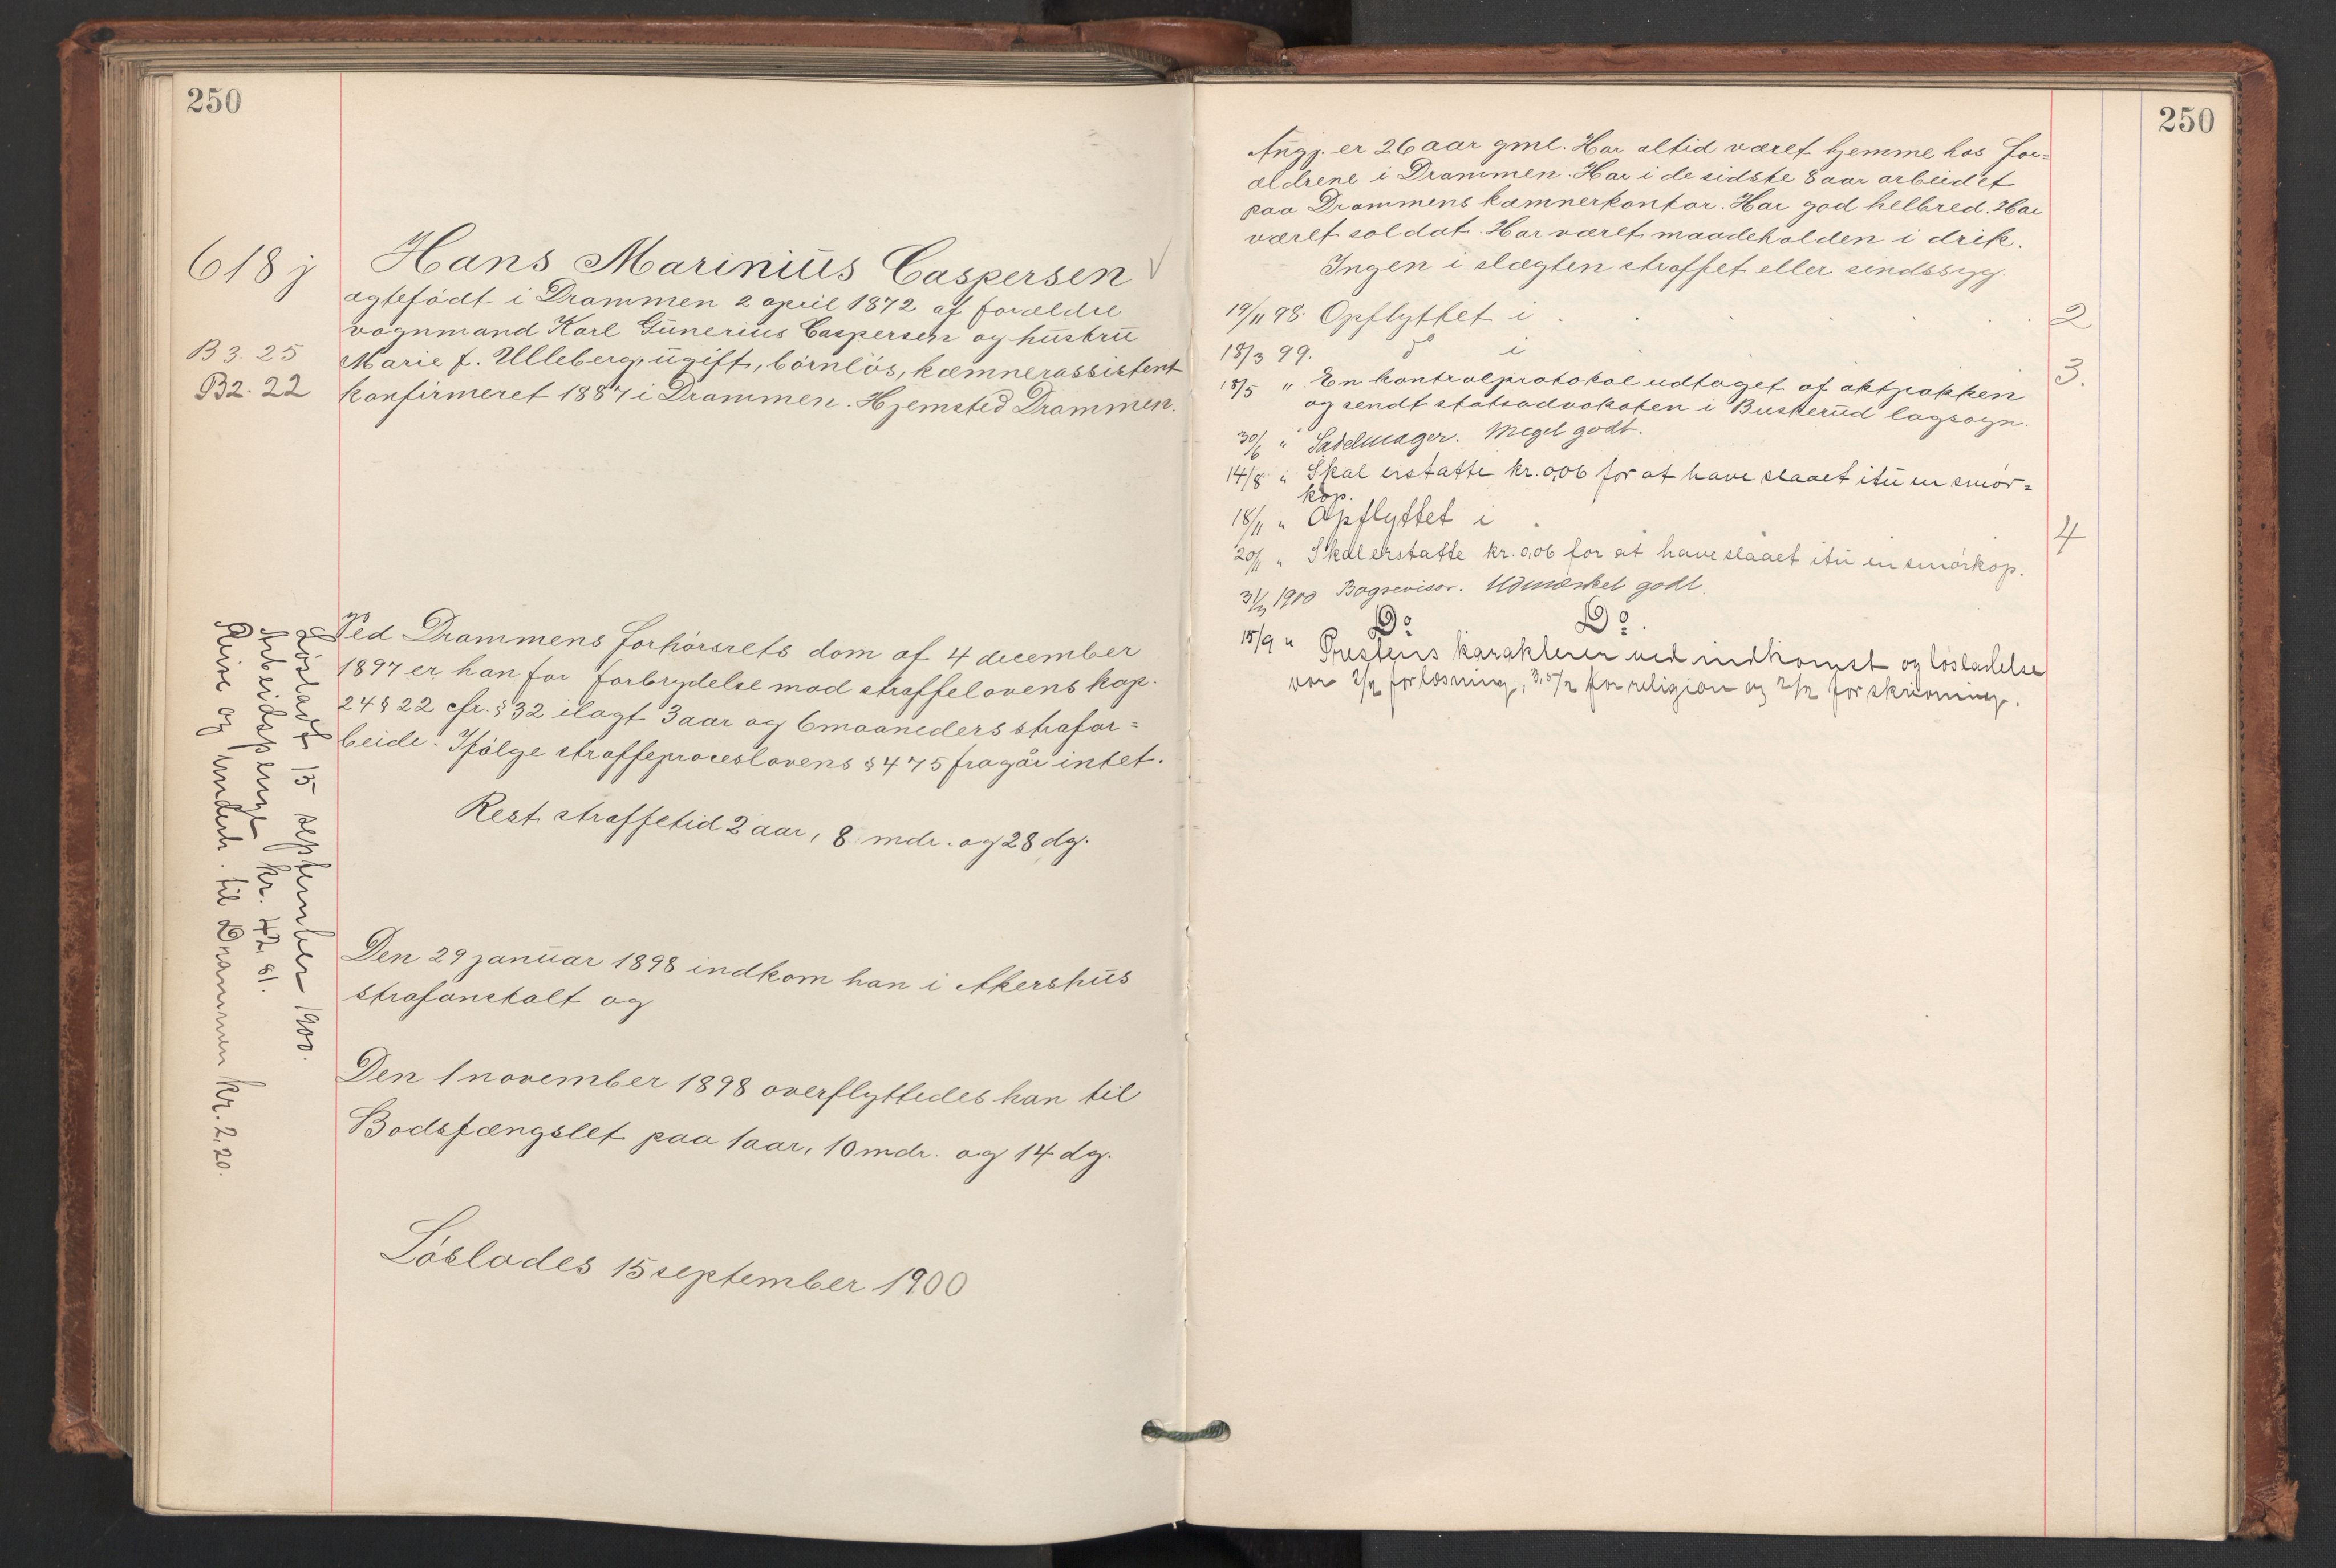 250
618 j
Hans Marinius Caspersen
ægtefödt i Drammen 2 april 1872 af forældre
vognmand Karl Gunerius Caspersen og hustru
B 3. 25
Marie f. Ulleberg, ugift, börnlös, kæmnerassistent
B2. 22
konfirmeret 1887 i Drammen. Hjemsted Drammen.
Ved Drammens forhörsrets dom af 4 december
1897 er han for forbrydelse mod straffelovens kap.
24 § 22 cfr. § 32 ilagt 3 aar og 6 maaneders strafar=
beide. Ifölge straffeproceslovens § 475 fragår intet.
Rest straffetid 2 aar, 8 mdr. og 28 dg.
Den 29 januar 1898 indkom han i Akershus
strafanstalt og
Den 1 november 1898 overflyttedes han til
Bodsfængslet paa 1 aar, 10 mdr. og 14 dg.
Löslades 15 september 1900
Lösladt 15 september 1900.
Arbeidspenge kr. 42,81.
Reise og underh. til Drammen kr. 2,20.
250
Angj. er 26 aar gml. Har altid været hjemme hos for=
ældrene i Drammen. Har i de sidste 8 aar arbeidet
paa Drammens kæmnerkontor. Har god helbred. Har
været soldat. Har været maadeholden i drik.
Ingen i slægten straffet eller sindssyg.
19/11 98. Opflyttet i 2
18/3 99. do i 3.
18/5 " En kontrolprotokol udtaget af aktpakken
og sendt statsadvokaten i Buskerud lagsogn.
30/6 " Sadelmager. Meget godt.
14/8 " Skal erstatte kr. 0,06 for at have slaaet itu en smör=
kop.
18/11 " Opflyttet i 4
20/11 " Skal erstatte kr. 0,06 for at have slaaet itu en smörkop.
31/3 1900 Bogrevisor. Udmærket godt.
15/9 " Do Do.
Prestens karakterer ved indkomst og löslatelse
var 2/2 for læsning, 3,5/2 for religion og 2/2 for skrivning.